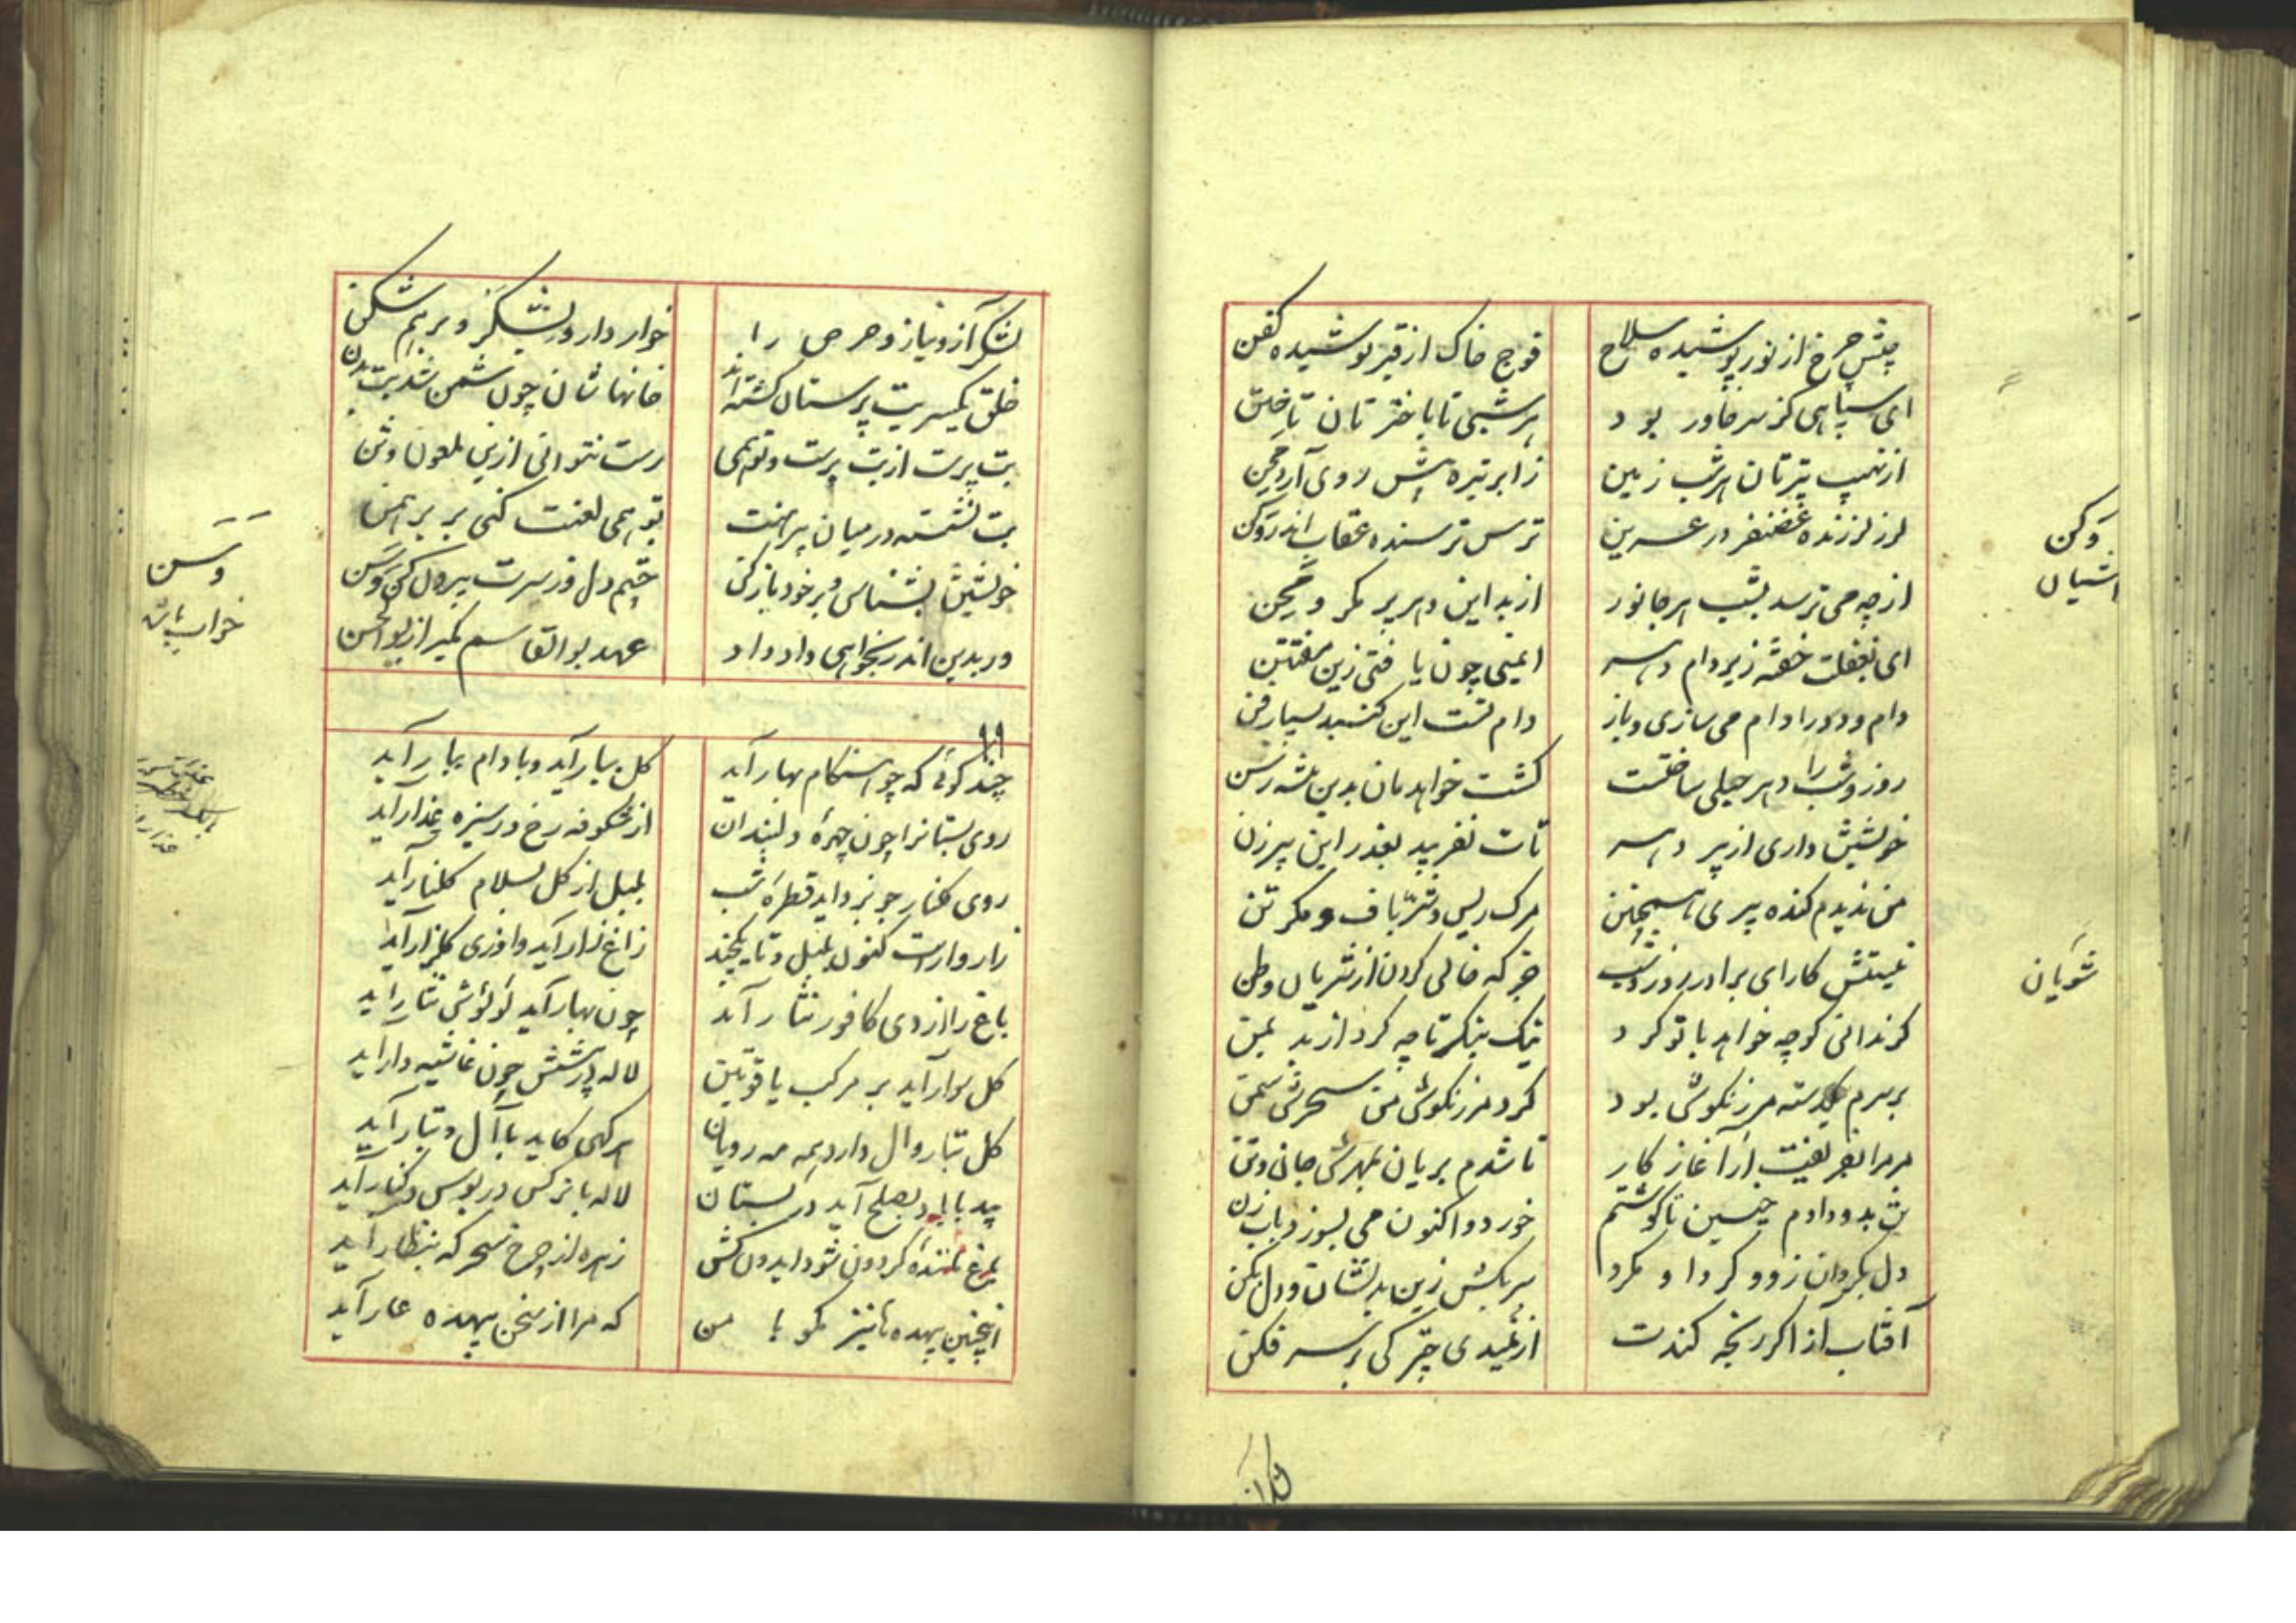 جیش چرخ از نور پوشیده سلاح
فوج خاک از قیر پوشیده کفن
ای سپاهی کز سر خاور بود
هر شبی تا باختر تان تاختن
از نهیب تیرتان هر شب زمین
ز ابر تیره پیش روی آرد مجن
لرز لرزنده غضنفر در عرین
ترس ترسنده عقاب اندر وکن
از چه می ترسد بشب هر جانور
از بد این دهر پر مکر و محن
ای بغفلت خفته زیر دام دهر
ایمنی چون یافتی زین مفتتن
دام و دد را دام می سازی و باز
دام تست این گنبد بسیار فن
روز و شب را دهر حبلی ساختست
کشت خواهدمان بدین پیشه رسن
خویشتن داری از پیر دهر
تات نفریبد بغدر این پیر زن
من ندیدم گنده پیری همچنین
مرگ ریس و شرّ باف و مکر تن
نیستش کار ای برادر روز و شب
جز که خالی کردن از شویان وطن
گر ندانی کو چه خواهد با تو کرد
نیک بنگر تا چه کرد از بد بمن
بر سرم یکدسته مرزنگوش بود
کرد مرزنگوش من سحرش سمن
مر مرا بفریفت از آغاز کار
تا شدم بریان بمهرش جان و تن
تن بدو دادم چنین تا گوشتم
خورد و اکنون می بسوزد بابزن
دل بگردان زود و گرد او مگرد
سر بکش زین بد نشان و دل بکن
آفتاب آز اگر رنجه کندت
از نمیدی چتر کی بر سر فکن
وکن
اشیان
شویان
لشکر
لشکر آز و نیاز و حرص را
خوار دار و لشکر و برهم شکن
خلق یکسر بت پرستان گشته اند
خانهاشان چون شمن شد بت بدن
بت پرست از بت پرست و تو همی
رست نتوانی ازین ملعون وثن
بت نشسته در میان پیرهنت
تو همی لعنت کنی بر برهمن
خویشتن بشناس و بر خود باز کن
چشم دل وز سرت بیرون کن وسن
ور بدین اندر بخواهی داد داد
عهد بوالقاسم بگیر از بوالحسن
وسن
خراب باشد
چند گوئی که چو هنگام بهار آید
گل ببار آید و بادام ببار آید
روی بستانرا چون چهرهٔ دلبندان
از شکوفه رخ و در سبزه عذار آید
روی گلنار چو بزداید قطرهٔ شب
بلبل از گل بسلام گلنار آید
زار وارست کنون بلبل و تا یکچند
زاغ زار آید و او زی گلزار آید
باغ را از دی کافور نثار آید
چون بهار آید لؤلؤش نثار آید
گل سوار آید بر مرکب یاقوتین
لاله در پیشش چون غاشیه دار آید
گل تبار و آل دارد همه مه رویان
هر گهی کاید با آل و تبار آید
بید با باد بصلح آید در بستان
لاله با نرگس در بوس و کنار آید
باغ مانندهٔ گردون شود ایدون کش
زهره از چرخ سحرگه بنظار آید
اینچنین بیهده ها نیز مگو با من
که مرا از سخن بیهده عار آید